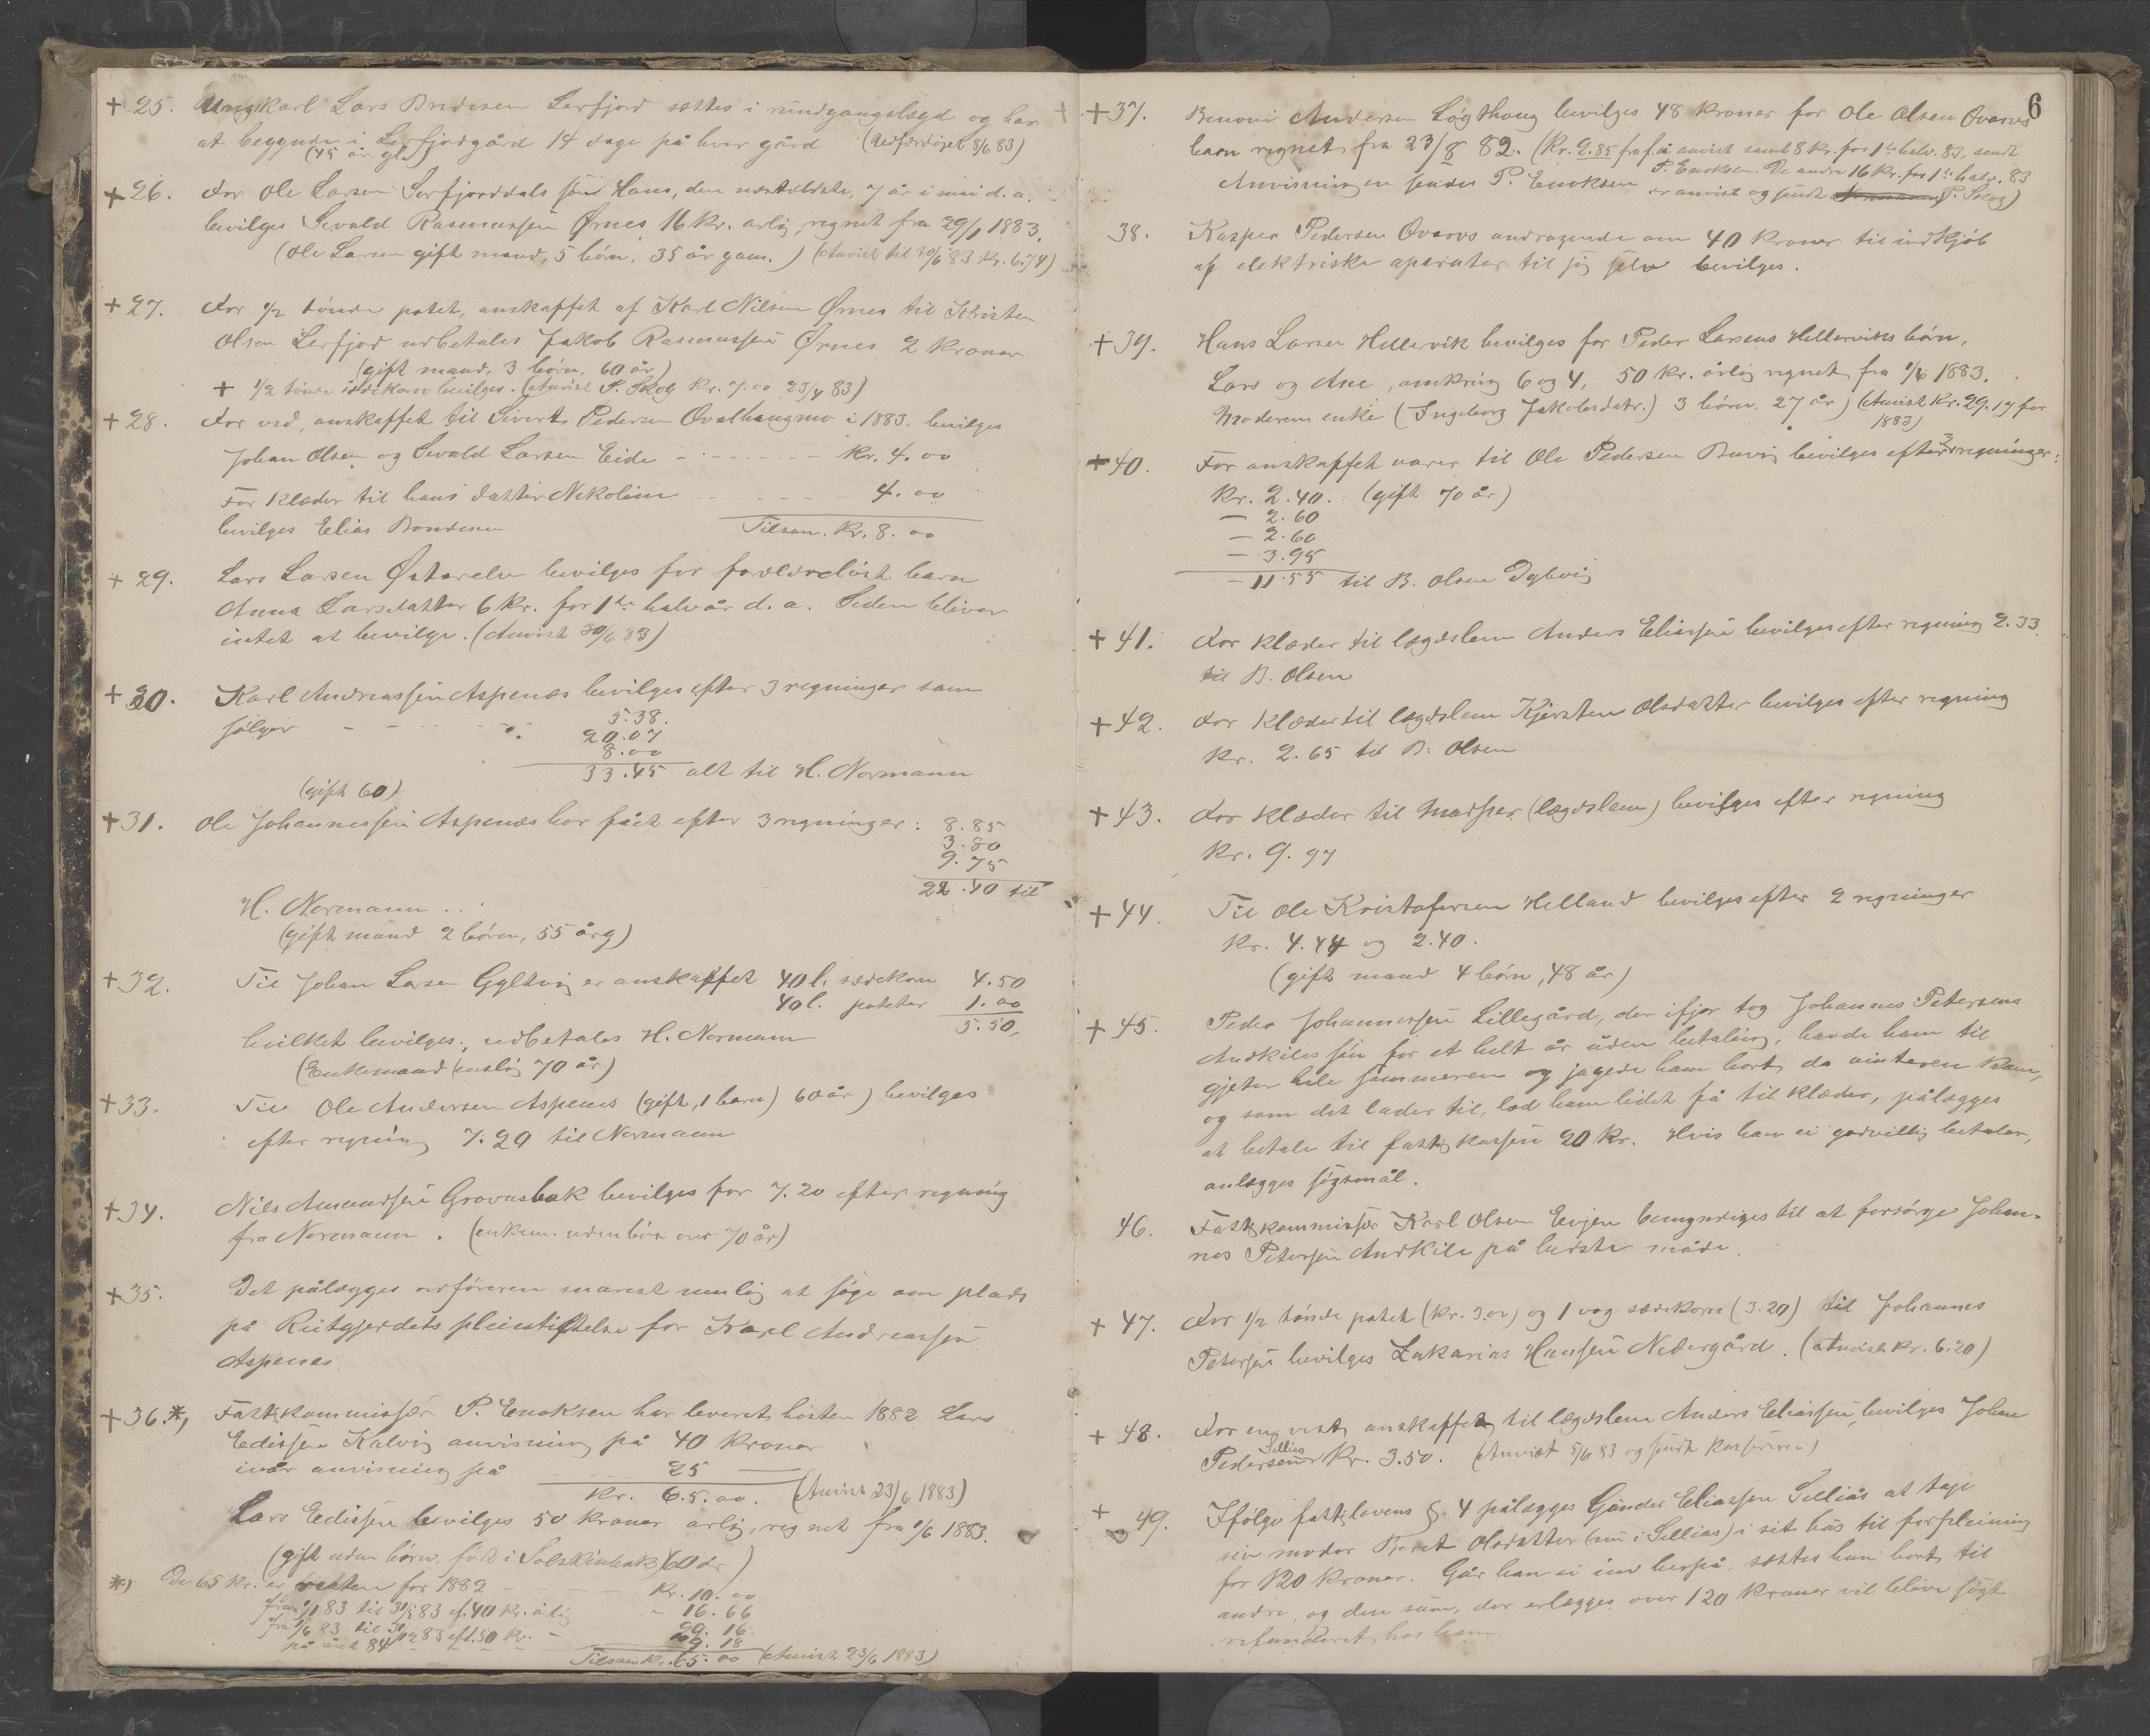 + 25. Ungkarl Lars Bredesen Lerfjord sættes i rundgangslægd og har
at begynde i Lerfjordgård 14 dage på hver gård (Utfærdiget 8/6 83)
(45 år gl.)
+ 26. For Ole Larsen Serfjorddals søn Hans, den næstældste, 7 år i mai d. a.
bevilges Sevald Rasmussen Ørnes 16 kr. årlig, regnet fra 29/1 1883.
(Ole Larsen gift mand, 5 børn, 35 år gam.) (Anvist til 30/6 83 kr. 6.74)
+ 27. For 1/2 tønde potet, anskaffet af Karl Nilsen Ørnes til Kristen
Olsen Lerfjord udbetales Jakob Rasmussen Ørnes 2 kroner
(gift mand, 3 børn, 60 år)
+ 1/2 tønde sædekorn bevilges. (Anvist P. Skog kr. 7.00 23/4 83)
+ 28. For ved, anskaffet til Sivert Pedersen Ovalhaugmo i 1883. bevilges
Johan Olsen og Sevald Larsen Eide - - - - - - kr. 4.00
For klæder til hans datter Nekoline - - - - 4.00
bevilges Elias Bondesen Tilsam. kr. 8.00
+ 29. Lars Larsen Østerelv bevilges for forældreløst barn
Anna Larsdatter 6 kr. for 1ste halvår d. a. Siden bliver
intet at bevilge. (Anvist 30/6 83)
+ 30. Karl Andreassen Aspenæs bevilges efter 3 regninger som
følger - - - - - 5.38.
20.07
8.00
33.45 alt til H. Normann
(gift 60)
+ 31. Ole Johannessen Aspenæs har fået efter 3 regninger: 8.85
3.80
9.75
22.40 til
H. Normann . .
(gift mand 2 børn, 55 årg)
+ 32. Til Johan Larsen Gyltvig er anskaffet 40 l. sædekorn 4.50
40 l. poteter 1.00
5.50,
hvilket bevilges; udbetales H. Normann
(Enkemand enslig 70 år)
+ 33. Til Ole Andersen Aspenes (gift, 1 barn) 60 år) bevilges
efter regning 7.29 til Normann
+ 34. Nils Amundsen Grovasbak bevilges for 7.20 efter regning
fra Normann. (enkem. uden børn over 70 år)
+ 35. Det pålægges ordføreren snarest mulig at søge om plads
på Reitgjerdets pleiestiftelse for Karl Andreassen
Aspenes.
+ 36.*) Fattigkommissær P. Enoksen har leveret høsten 1882 Lars
Edissen Kalvig anvisning på 40 kroner
iår anvisning på - - - 25 —
kr. 65.00. (Anvist 23/6 1883)
Lars Edissen bevilges 50 kroner årlig, regnet fra 1/6 1883.
(gift uden børn, født i Solskinbak) (60 år)
*) De 65 kr. er resten for 1882 - - - kr. 10.00
fra 1/1 83 til 31/5 83 ef. 40 kr. årlig - 16.66
fra 1/6 83 til 31/12 83 eft. 50 kr. - 29.16
på året 84 - - - - 9.18
Tilsam kr. 65.00 (Anvist 23/6 1883)
6
+ 37. Benoni Andersen Løgthaug bevilges 48 kroner for Ole Olsen Ovarvs
barn regnet fra 23/8 82. (Kr. 2.85 fra f.å. anvist samt 8 kr. for 1ste halv. 83, sendt
P. Enoksen. De andre 16 kr. for 1ste halv. 83
Anvisningen sendes P. Enoksen er anvist og sendt P. Skog)
38. Kasper Pedersen Ovarvs andragende om 40 kroner til indkjøb
af elektriske aparater til sig selv bevilges.
+ 39. Hans Larsen Hellervik bevilges for Peder Larsens Hellerviks børn,
Lars og Ane, omkring 6 og 4, 50 kr. årlig regnet fra 1/6 1883.
Moderen enke (Ingeborg Jakobsdatr.) 3 børn, 27 år) (Anvist kr. 29.17 for
1883)
+ 40. For anskaffet varer til Ole Pedersen Buvig bevilges efter 3 regninger:
kr. 2.40. (gift 70 år)
— 2.60
— 2.60
— 3.95
- 11.55 til B. Olsen Dybvig
+ 41. For klæder til lægdslem Anders Eliassen bevilges efter regning 2.33
til B. Olsen
+ 42. For klæder til lægdslem Kjersten Olsdatter bevilges efter regning
kr. 2.65 til B. Olsen
+ 43. For klæder til Mads per (lægdslem) bevilges efter regning
kr. 9.97
+ 44. Til Ole Kristofersen Helland bevilges efter 2 regninger
kr. 4.44 og 2.40.
(gift mand 4 børn, 48 år)
+ 45. Peder Johannessen Lillegård, der ifjor tog Johannes Petersens
Andkiles søn for et helt år uden betaling, havde ham til
gjeter hele sommeren og jagede ham bort, da vinteren kom,
og som det lader til, lod ham lidet få til klæder, pålægges
at betale til fattigkassen 20 kr. Hvis han ei godvillig betaler,
anlægges søgsmål.
46. Fattigkommissær Karl Olsen Evjen bemyndiges til at forsørge Johan-
nes Petersen Andkile på bedste måde.
+ 47. For 1/2 tønde potet (kr. 3.00) og 1 vog sædekorn (3.20) til Johannes
Petersen bevilges Zakarias Hansen Nedergård. (Anvist kr. 6.20)
+ 48. For en vest, anskaffet til lægdslem Anders Eliassen, bevilges Johan
Pedersen Sellias kr. 3.50. (Anvist 5/6 83 og sendt kassereren)
+ 49. Ifølge fattiglovens §. 4 pålægges Gunder Eliassen Sellias at tage
sin moder Beret Olsdatter (nu i Sellias) i sit hus til forpleining
for 120 kroner. Går han ei ind herpå, sættes hun bort til
andre, og den sum, der erlægges over 120 kroner vil blive søgt
refunderet hos ham.